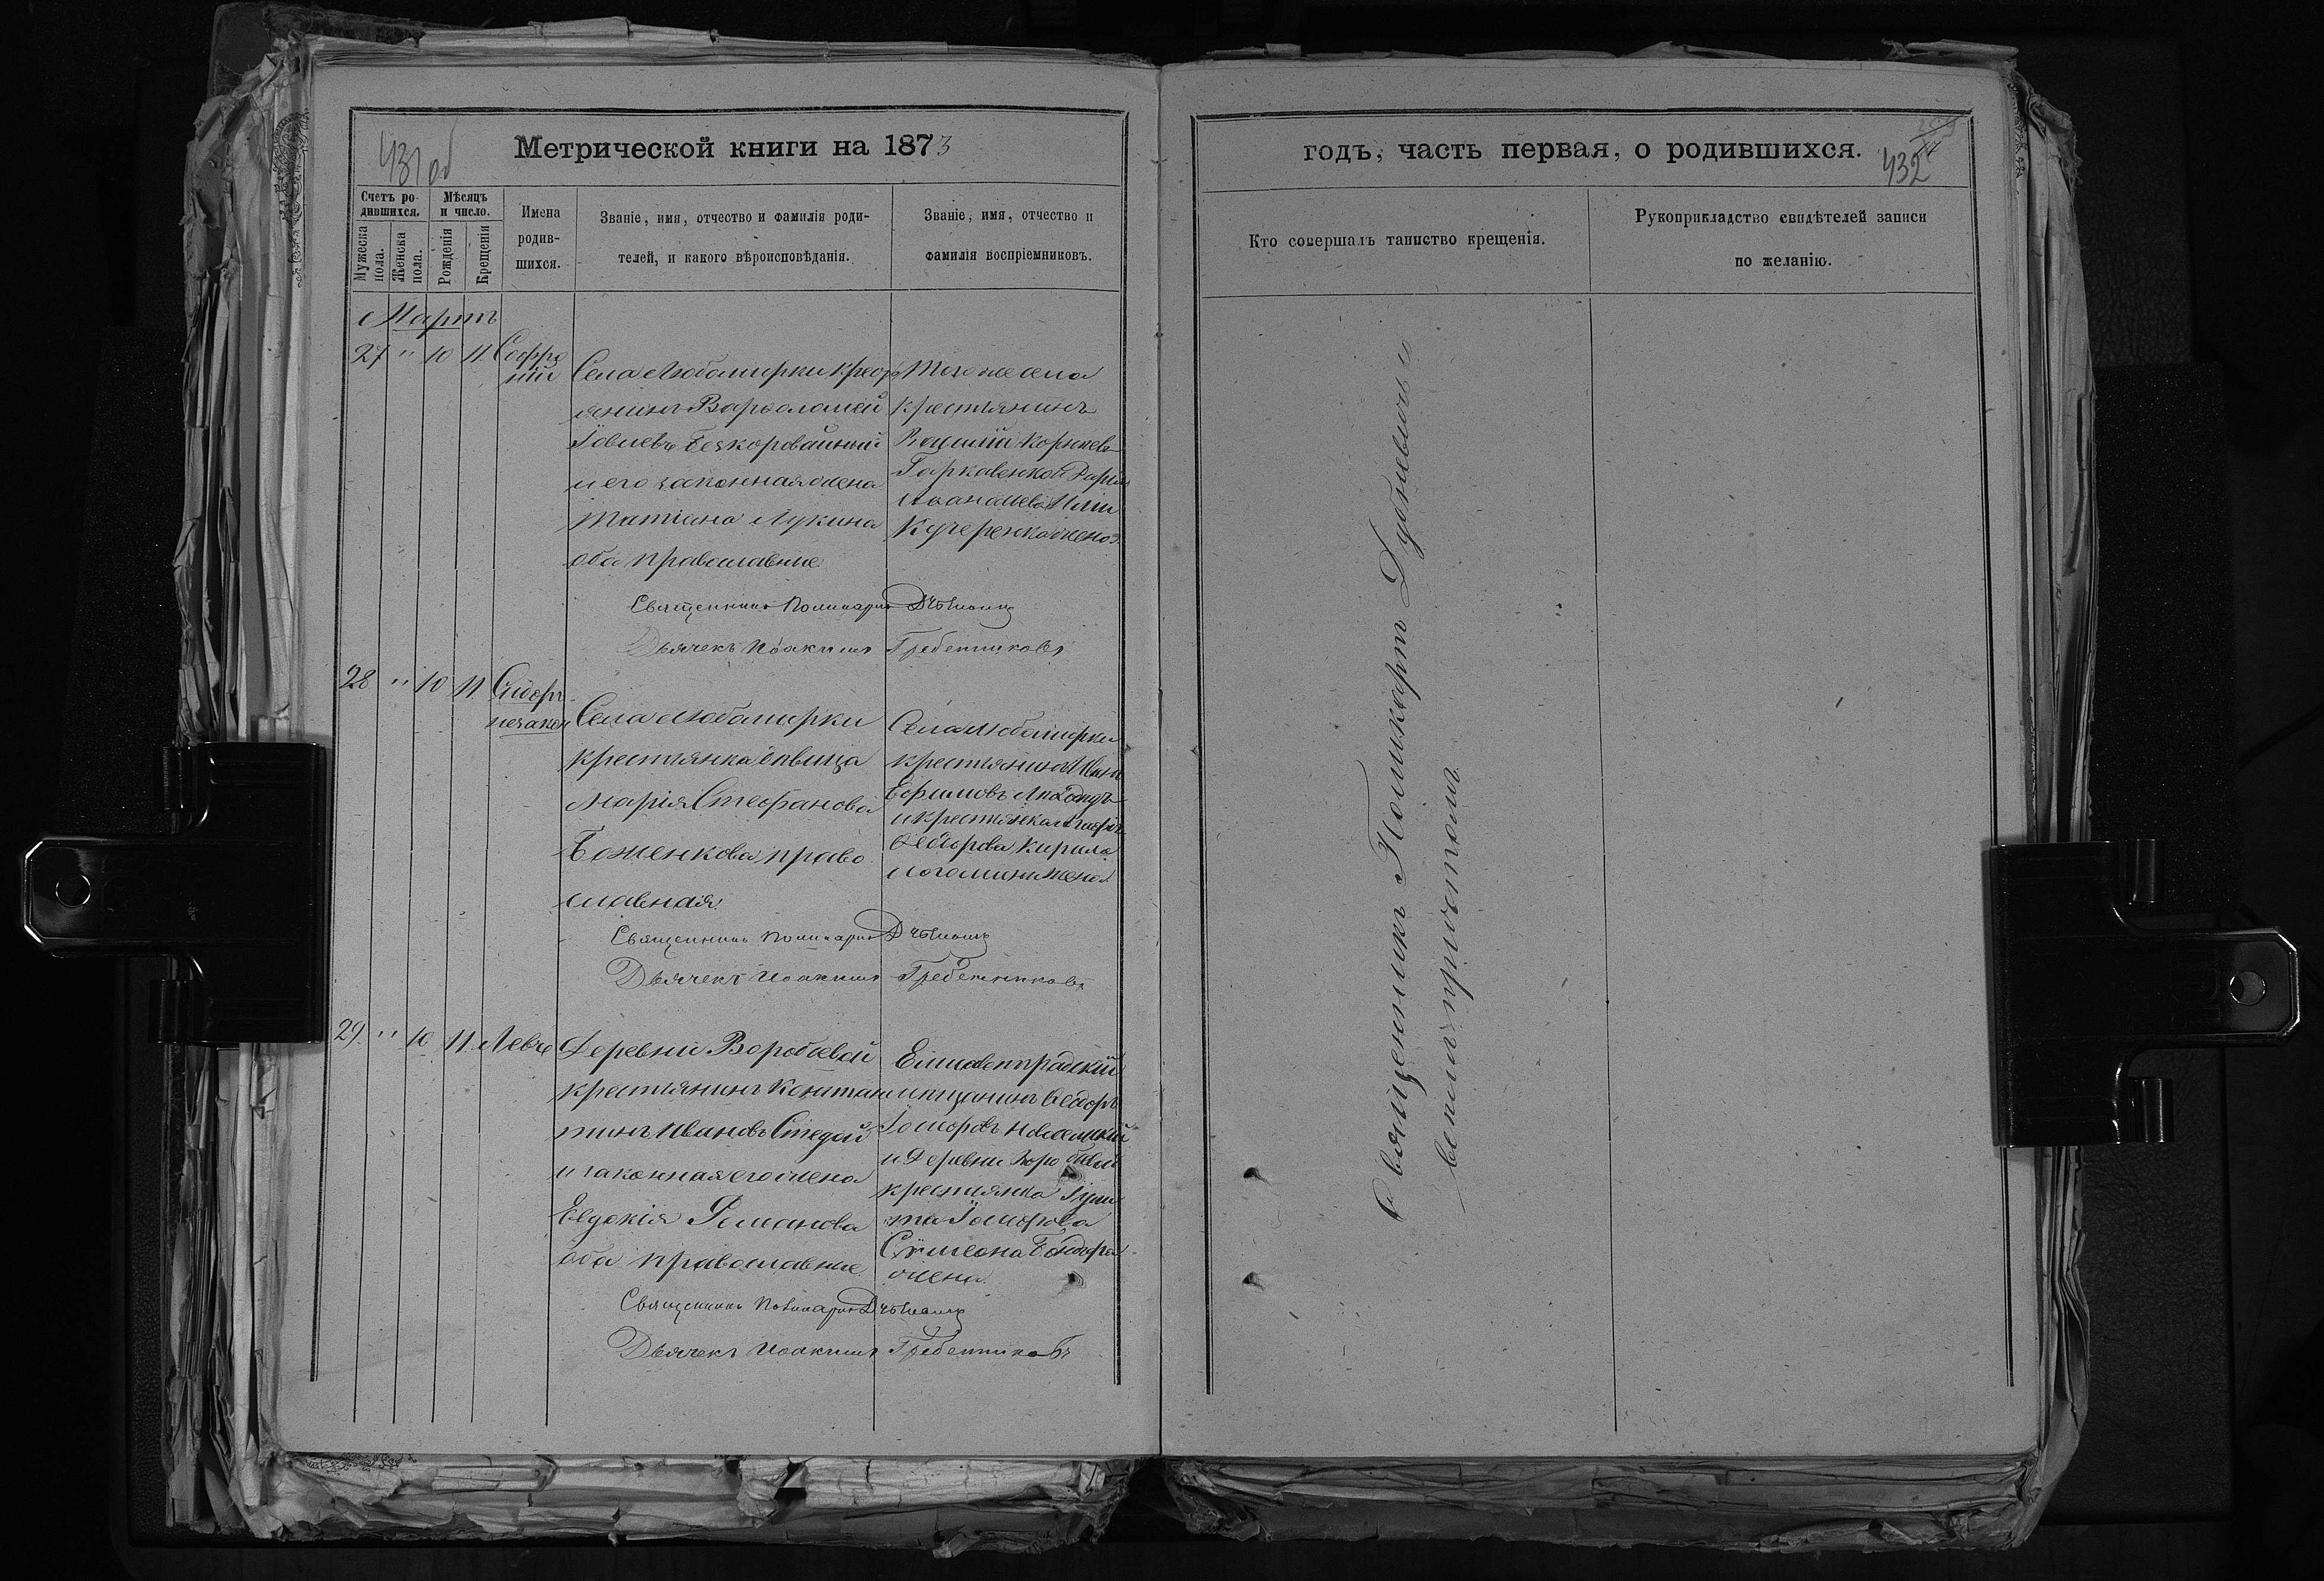 431 об
Метрической книги на 1873
Счетъ ро-
дившихся.
Мѣсяцъ
и число.
Мужеска
пола.
Женска
пола.
Рожденія
Крещенія
Имена
родив-
шихся.
Званіе, имя, отчество и фамилія роди-
телей, и какого вѣроисповѣданія.
Званіе, имя, отчество и
фамилія воспріемниковъ.
Мартъ
27 " 10 11. Софро
ній
Села Любомирки крест
янинъ Варфоломей
Іовлевъ Безкоровайный
и его законная жена
Татіана Лукина
оба православные
Того же села
крестьянинъ
Василій Корнѣевъ
Гаркавенко и Дарія
Кучеренка жена
Священникъ Поликарпъ
Дьячекъ Іоакимъ Гребенниковъ
28 " 10 11. Сидоръ
незакон
Села Любомирки
крестьянка вдовица
Марія Стефанова
Боженкова право
славная
Села Любомирки
крестьянинъ Иванъ
Ефимовъ
и крестьянка
Ѳеодорова Кирила
жена
Священникъ Поликарпъ
Дьячекъ Іоакимъ Гребенниковъ
29. " 10 11. Левъ
Деревни Воробьевой
крестьянинъ Констан
тинъ Ивановъ
и законная его жена
Евдокія Романова
оба православные
Елисаветградскій
мѣщанинъ Ѳеодоръ
и Деревни Воробьевой
крестьянка
Сѵмеона Бондаря
жена
Священникъ Поликарпъ
Дьячекъ Іоакимъ Гребенниковъ
годъ, часть первая, о родившихся.
432
Кто совершалъ таинство крещенія.
Рукоприкладство свидѣтелей записи
по желанію.
Священникъ Поликарпъ
всѣмъ причтомъ